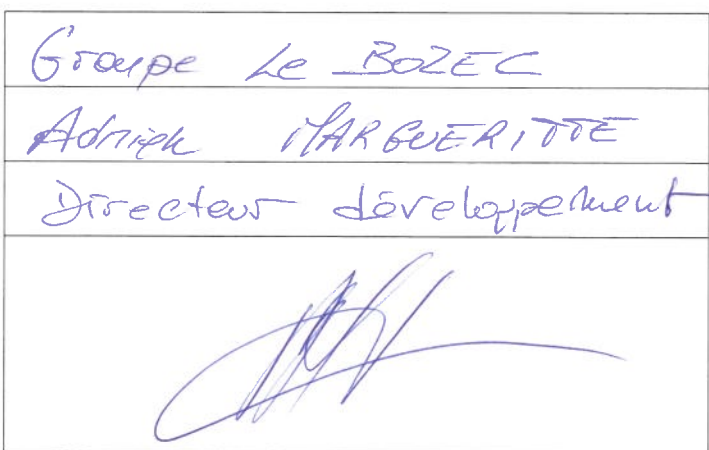 Groupe Le BOZEC
Adrien MARGUERITTE
Directeur développement